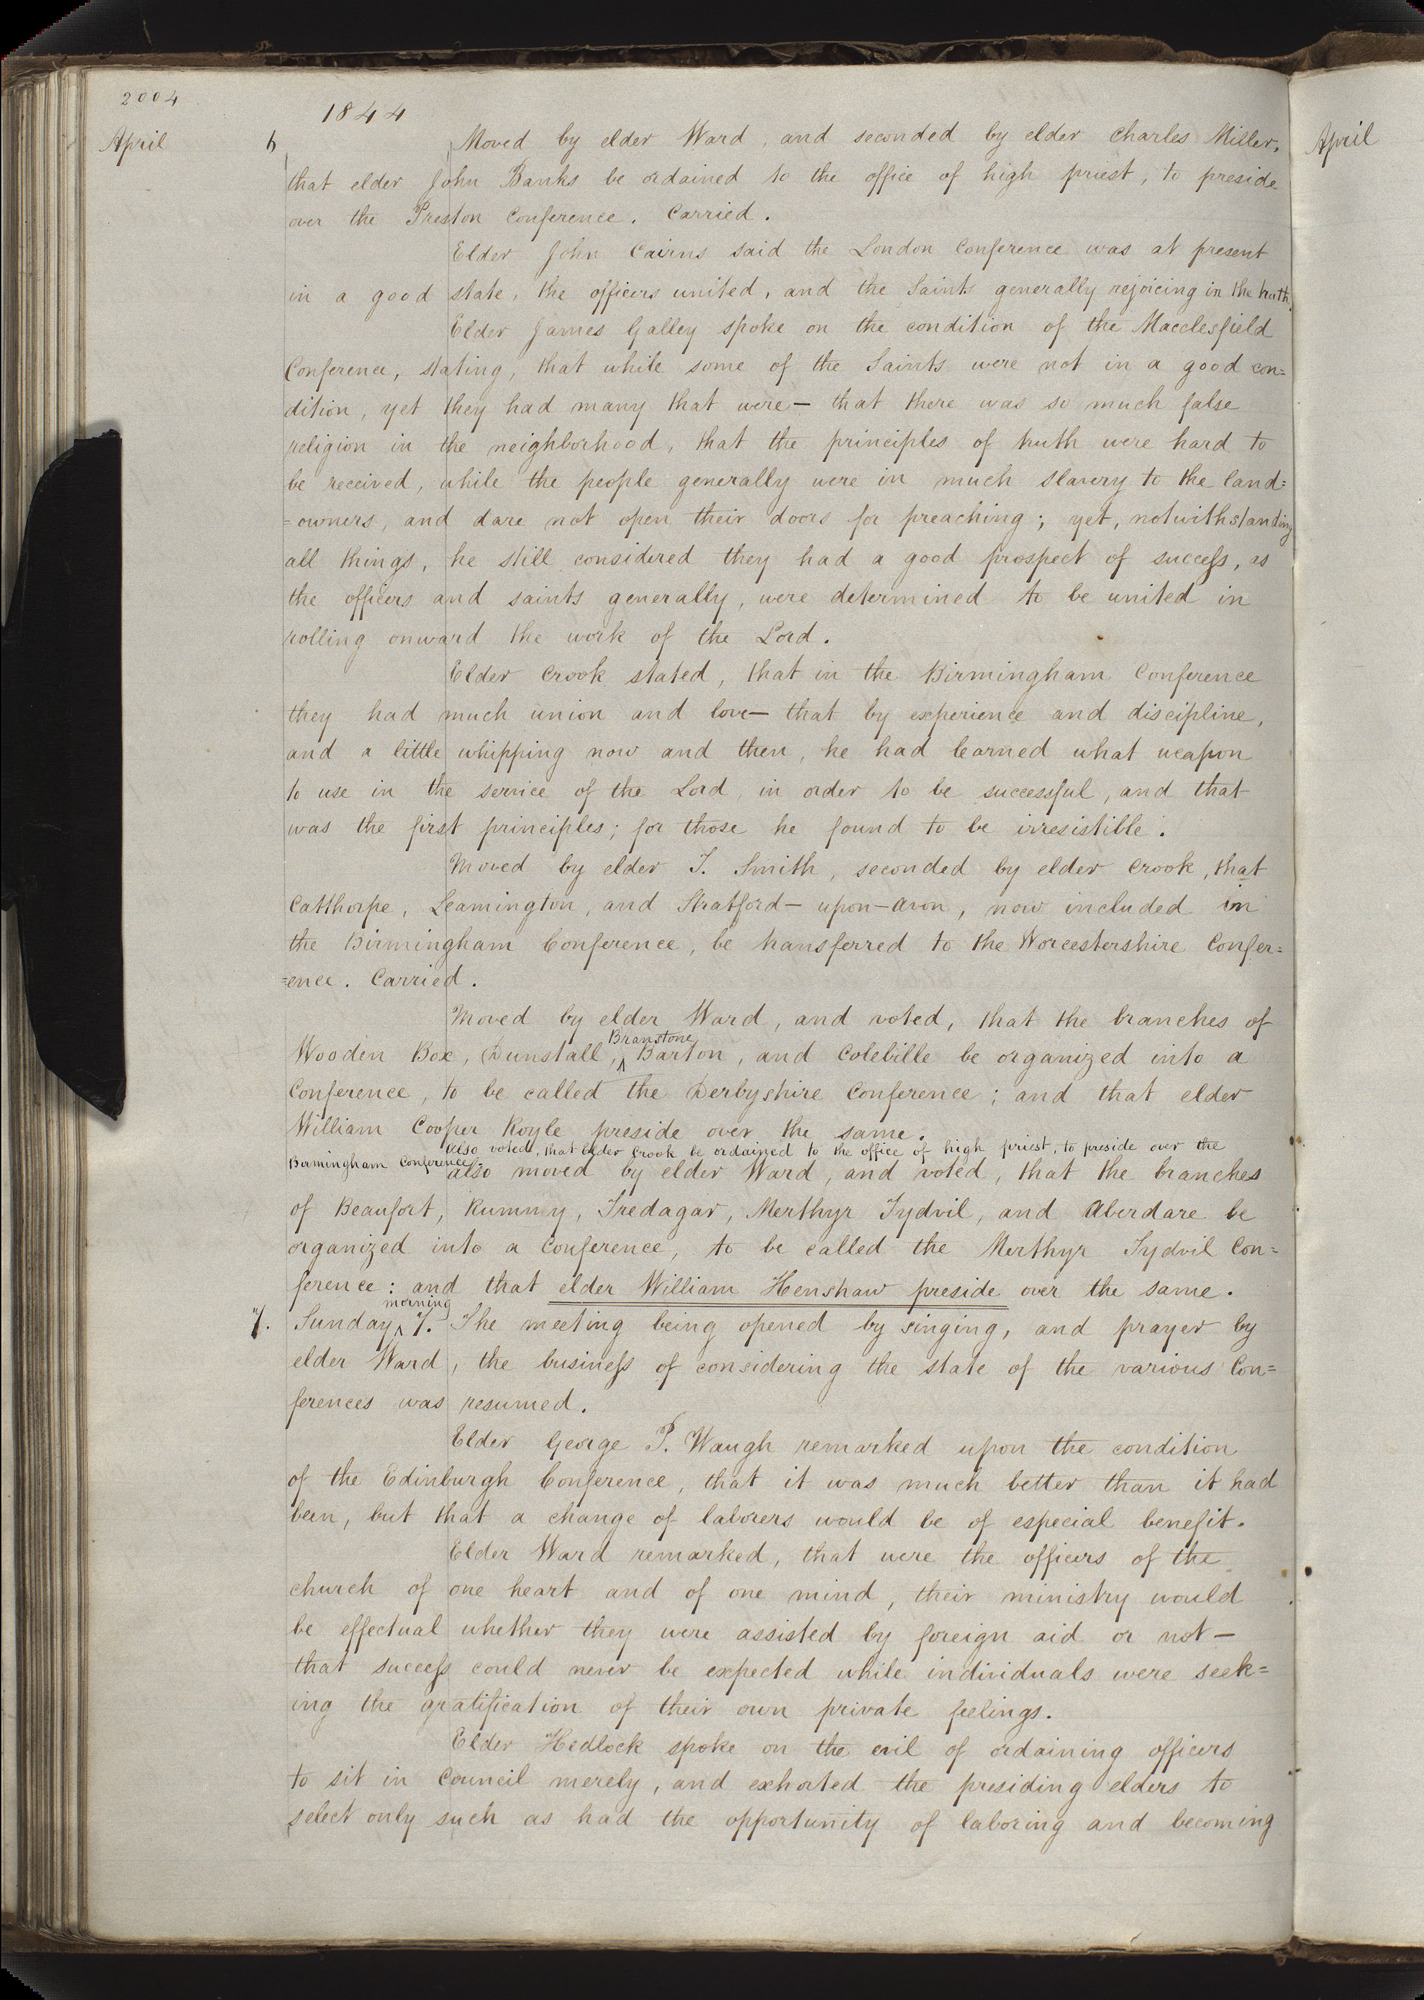 2004
1844
April 6 Moved by elder Ward, and seconded by elder Charles Miller,
that elder John Banks be ordained to the office of high priest, to preside
over the Preston Conference. Carried.
Elder John Cairns said the London Conference was at present
in a good state, the officers united, and the Saints generally rejoicing in the truth.
Elder James Galley spoke on the condition of the Macclesfield
Conference, stating, that while some of the Saints were not in a good con=
dition, yet they had many that were — that there was so much false
religion in the neighborhood, that the principles of truth were hard to
be received, while the people generally were in much slavery to the land=
=owners, and dare not open their doors for preaching; yet, notwithstanding
all things, he still considered they had a good prospect of success, as
the officers and saints generally, were determined to be united in
rolling onward the work of the Lord.
Elder Crook stated, that in the Birmingham Conference
they had much union and love — that by experience and discipline,
and a little whipping now and then, he had learned what weapon
to use in the service of the Lord, in order to be successful, and that
was the first principles; for those he found to be irresistible.
Moved by elder T. Smith, seconded by elder Crook, that
Catthorpe, Leamington, and Stratford-upon-Avon, now included in
the Birmingham Conference, be transferred to the Worcestershire Confer=
=ence. Carried.
Moved by elder Ward, and voted, that the branches of
Branstone
Wooden Box, Dunstall, ^ Barton, and Colebille be organized into a
Conference, to be called the Derbyshire Conference; and that elder
William Cooper Royle preside over the same.
also voted, that Elder Crook be ordained to the office of high priest, to preside over the
Birmingham Conference.
also moved by elder Ward, and voted, that the branches
of Beaufort, Rumny, Tredagar, Merthyr Tydvil, and Aberdare be
organized into a conference, to be called the Merthyr Tydvil Con=
ference: and that elder William Henshaw preside over the same.
morning
7. Sunday ^ 7. The meeting being opened by singing, and prayer by
elder Ward, the business of considering the state of the various Con=
ferences was resumed.
Elder George P. Waugh remarked upon the condition
of the Edinburgh Conference, that it was much better than it had
been, but that a change of laborers would be of especial benefit.
Elder Ward remarked, that were the officers of the
church of one heart and of one mind, their ministry would
be effectual whether they were assisted by foreign aid or not —
that success could never be expected while individuals were seek=
ing the gratification of their own private feelings.
Elder Hedlock spoke on the evil of ordaining officers
to sit in Council merely, and exhorted the presiding elders to
select only such as had the opportunity of laboring and becoming
April